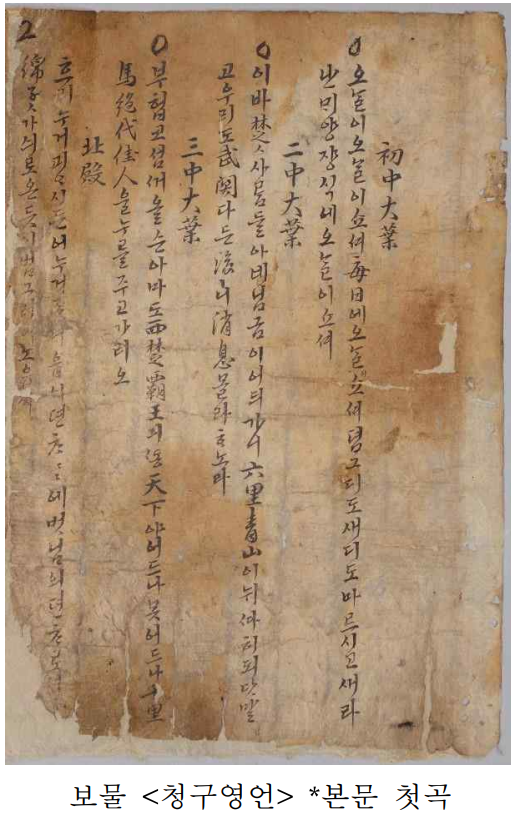 初中大葉
오ᄂᆞᆯ이오ᄂᆞᆯ이쇼셔每日에오ᄂᆞᆯ이쇼셔뎜그디도새디도마르시고새라
난ᄆᆡ양쟝식에오ᄂᆞᆯ이쇼셔
二中大葉
이바楚ㅅ사ᄅᆞᆷ들아네님금이어듸가니六里靑山이뉘ᄯᅡ히되닷말
고우리도武關다든後ㅣ니消息몰라ᄒᆞ노라
三中大葉
부헙고섬ᄭᅥ올슨아마도西楚霸王의天下야어드나못어드나千里
馬絶代佳人을누를주고가리오
北殿
흐리누거괴ᄋᆞ시든어누거에벗님의뎐ᄎᆞ로
綿子ㅅ가싀로온ᄃᆞᆺ이범그려노
2
보물 <청구영언> *본문 첫곡